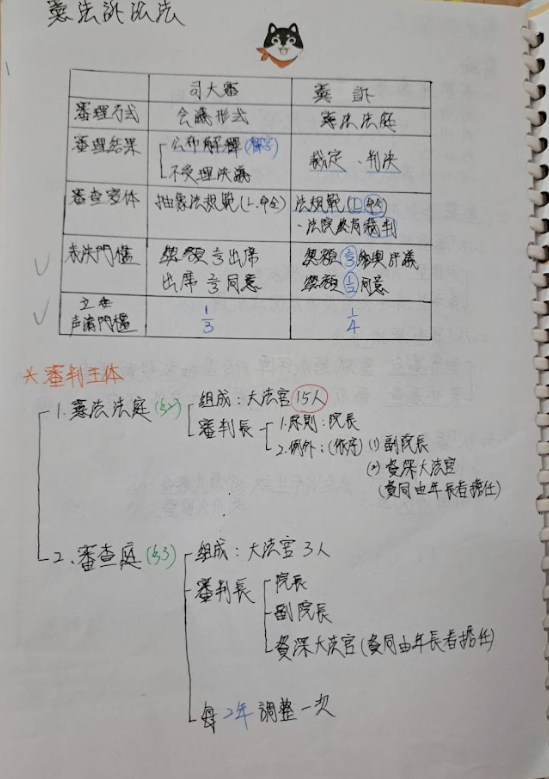 憲法訴訟法
司大審 憲訴
審理方式 會議形式 憲法法庭
審理結果 公布解釋(解字) 裁定、判決
不受理決議
審查客體 抽象法規範(1.命令) 法規範(1.命令)
·法院終局裁判
表決門檻 總額2/3出席 總額2/3參與評議
出席2/3同意 總額1/2同意
立委
聲請門檻 1/3 1/4
☆審判主體
1. 憲法法庭(§2) 組成:大法官15人
審判長 1.原則:院長
2.例外:(依序) (1) 副院長
(2) 資深大法官
(資同由年長者擔任)
2. 審查庭(§3) 組成:大法官3人
審判長 院長
副院長
資深大法官(資同由年長者擔任)
每2年調整一次